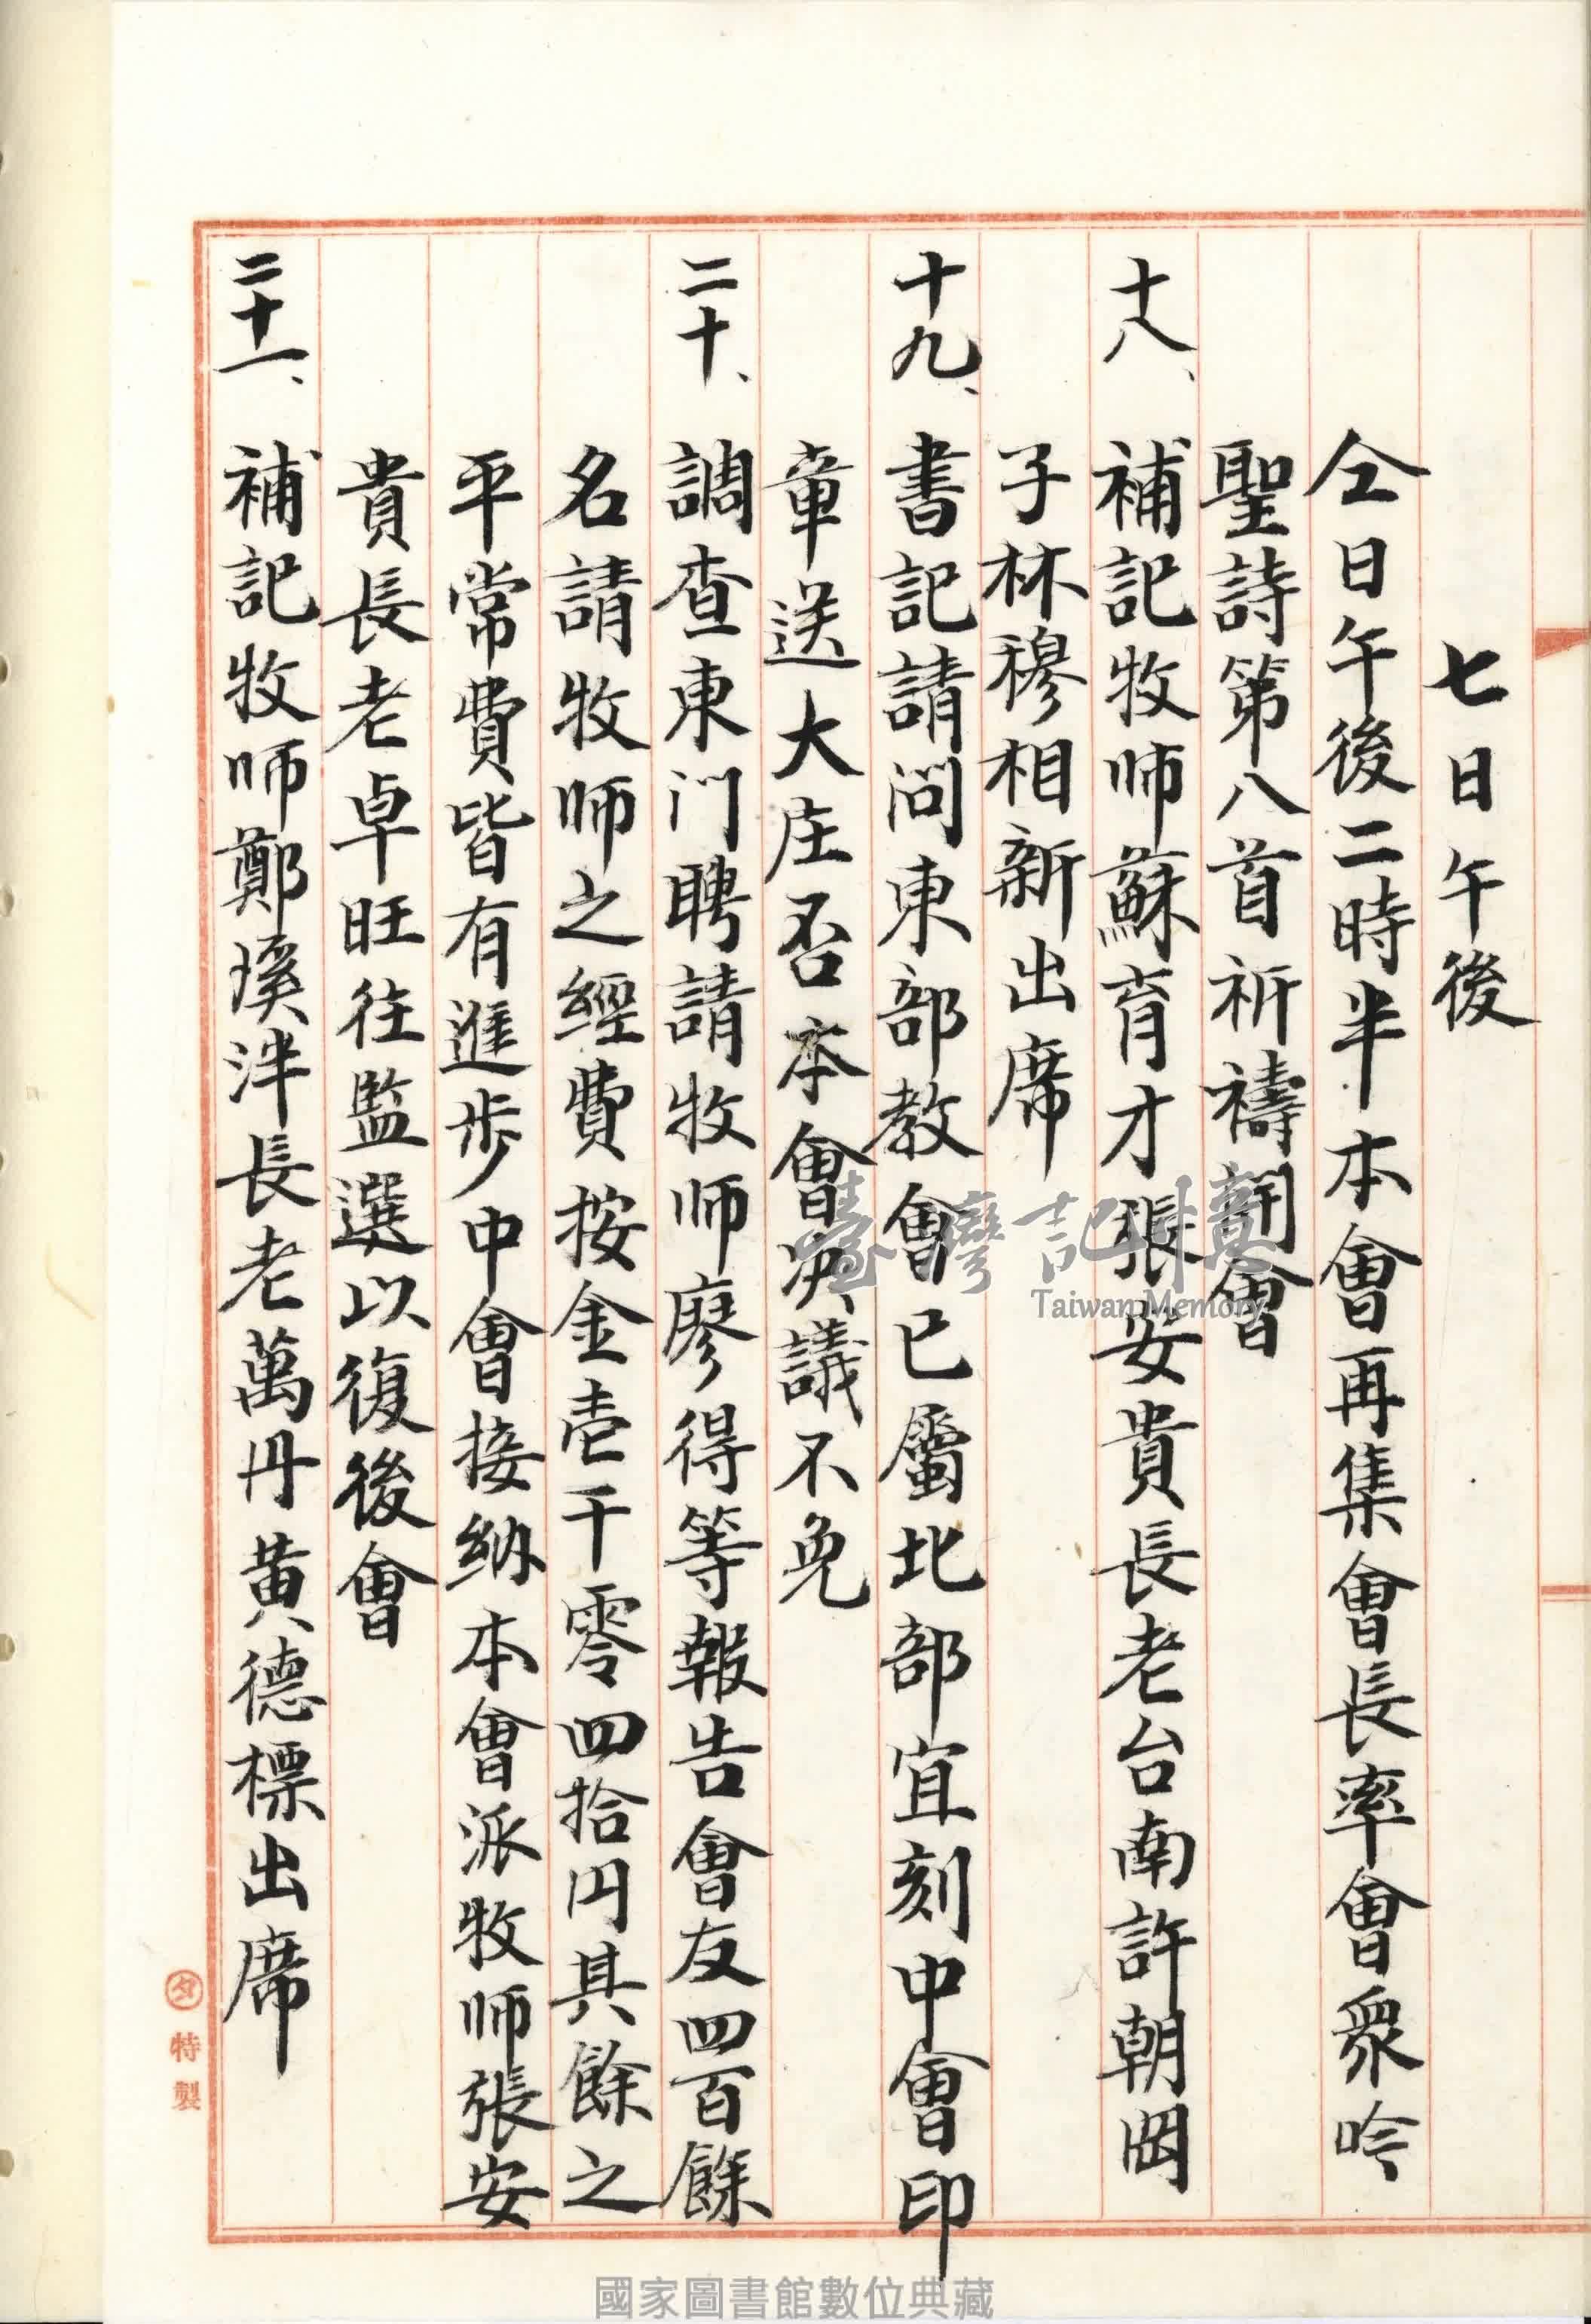 七日午後
仝日午後二時半本會再集會長率會衆吟
聖詩第八首祈禱開會
十八、補記牧师蘇育才張安貴長老台南許朝岡
子林穆相新出席
十九、書記請问東部教會已屬北部宜刻中會印
章送大庄否本會决議不免
二十、調查東门聘請牧师廖得等報告會友四百餘
名請牧师之經費按金壱千零四拾円其餘之
平常費皆有進步中會接納本會派牧师張安
貴長老卓旺往監選以復後會
二十一、補記牧师鄭溪泮長老萬丹黄德標出席
タ特製
臺灣記憶
Taiwan Memory
國家圖書館數位典藏